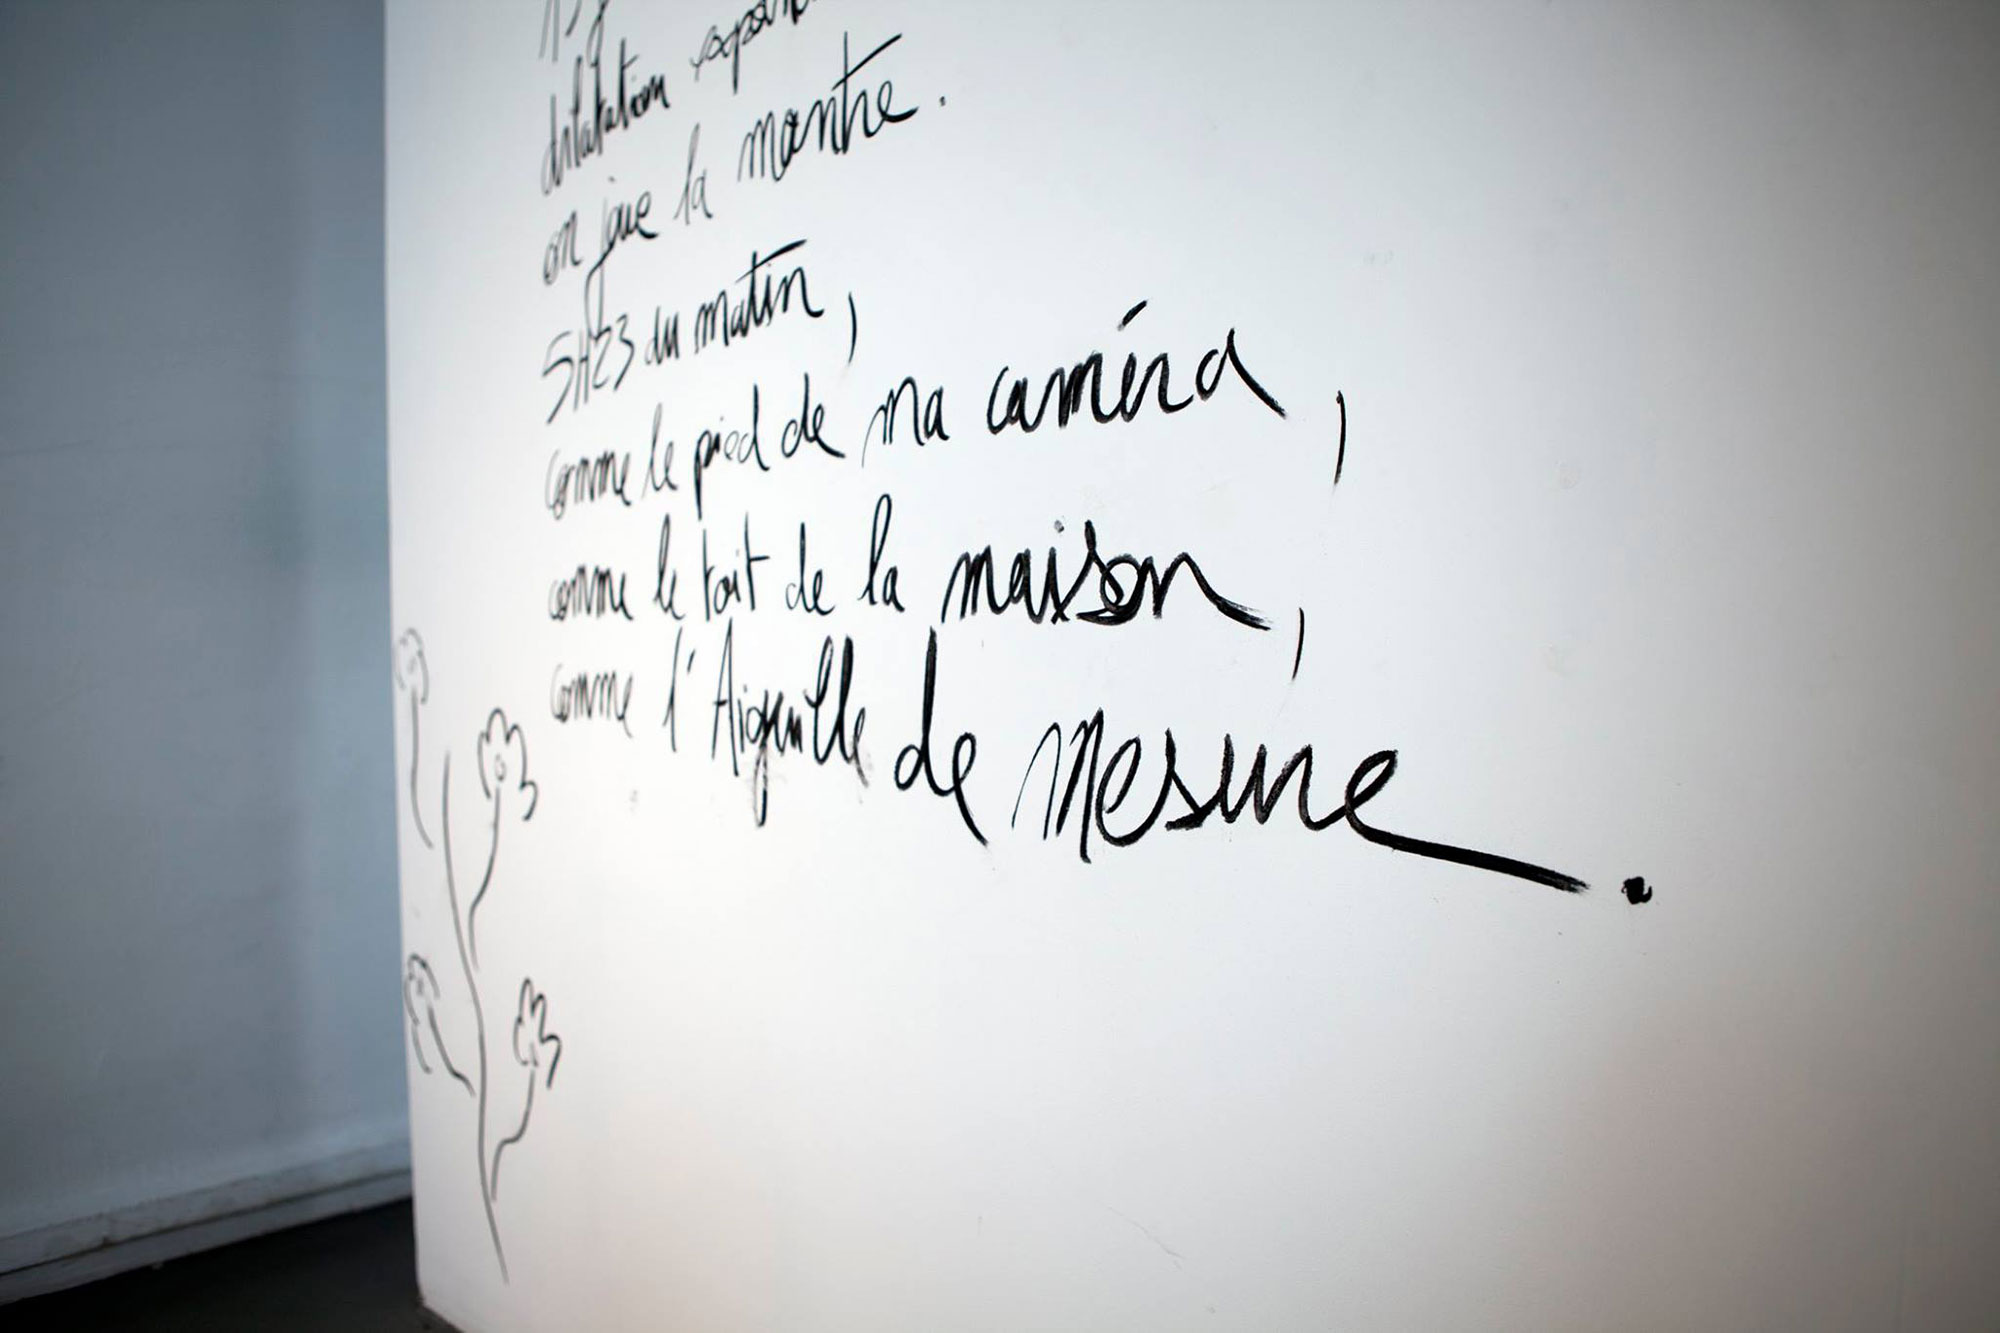 dilatation
on joue la montre.
5H23 du matin,
comme le pied de ma caméra,
comme le toit de la maison,
comme l'Aiguille de Mesure.